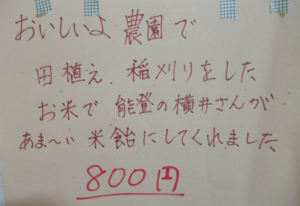 おいしいよ 農園で
田植え、稲刈りをした
お米で 能登の横井さんが
あま〜い 米飴にしてくれました
800円